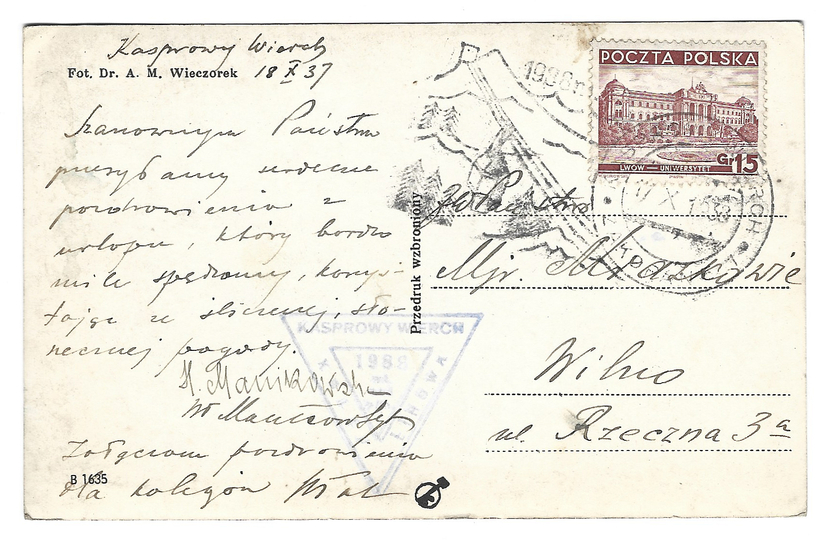 Kasprowy Wierch
Fot. Dr. A. M. Wieczorek 18 X 37
Szanownym Państwu
przesyłamy serdeczne
pozdrowienia z
urlopu, który bardzo
mile spędzamy, korzys-
tając ze ślicznej, sło-
necznej pogody.
M. Manikowska
Załączam pozdrowienia
dla kolegów
B 1635
Przedruk wzbroniony
KASPROWY WIERCH
1988
1988 m
POCZTA POLSKA
Gr 15
LWÓW — UNIWERSYTET
JW Państwo
Mjr.
Wilno
ul. Rzeczna 3a